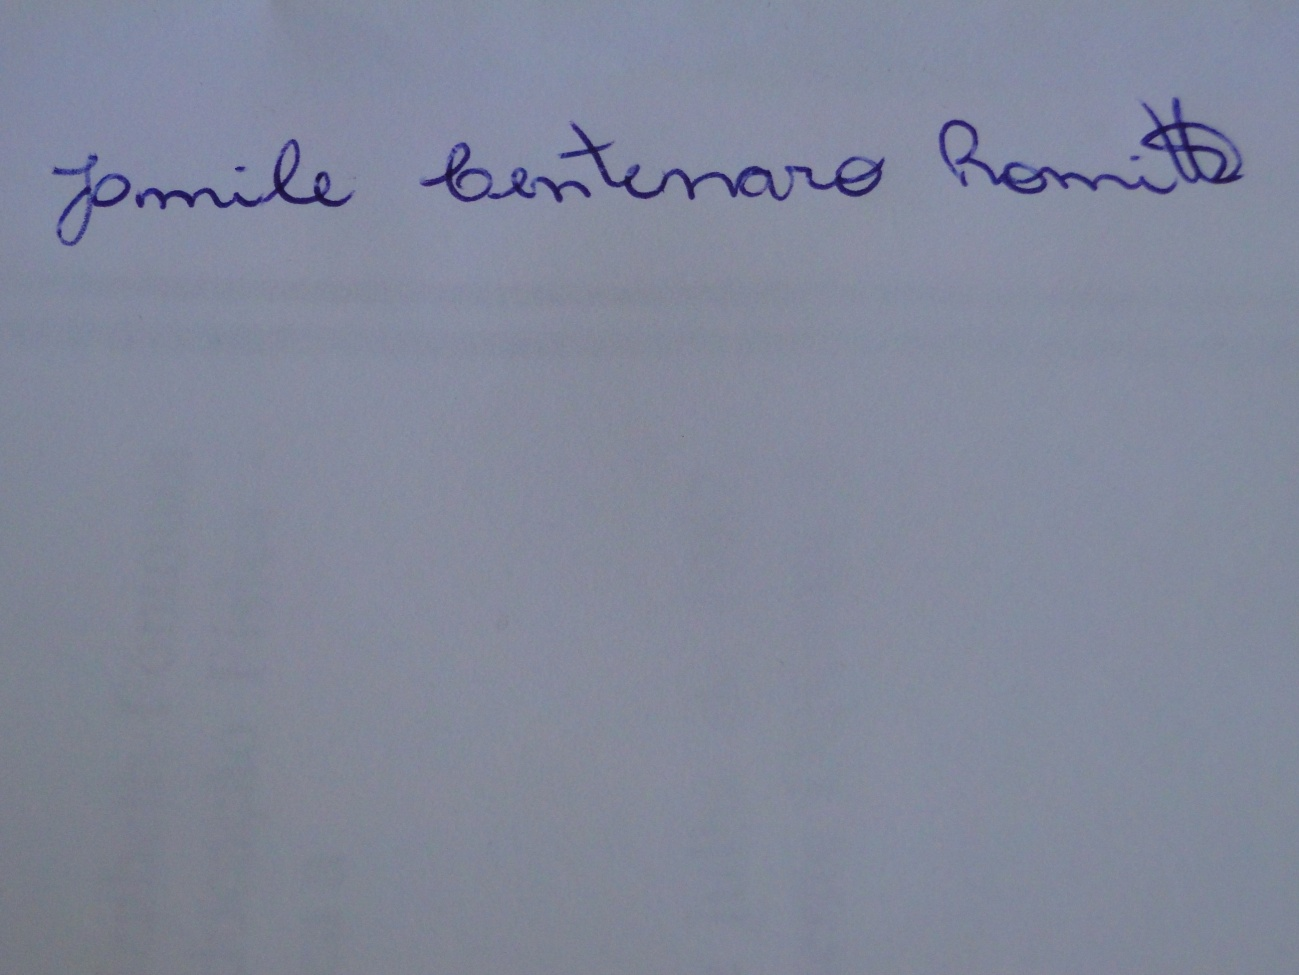 Jamile Centenaro Romitti